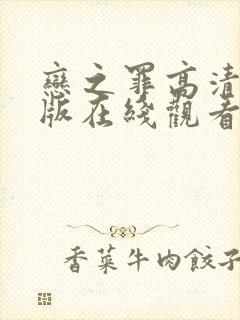 戀之罪高清
版在綫觀看
香菜牛肉餃子